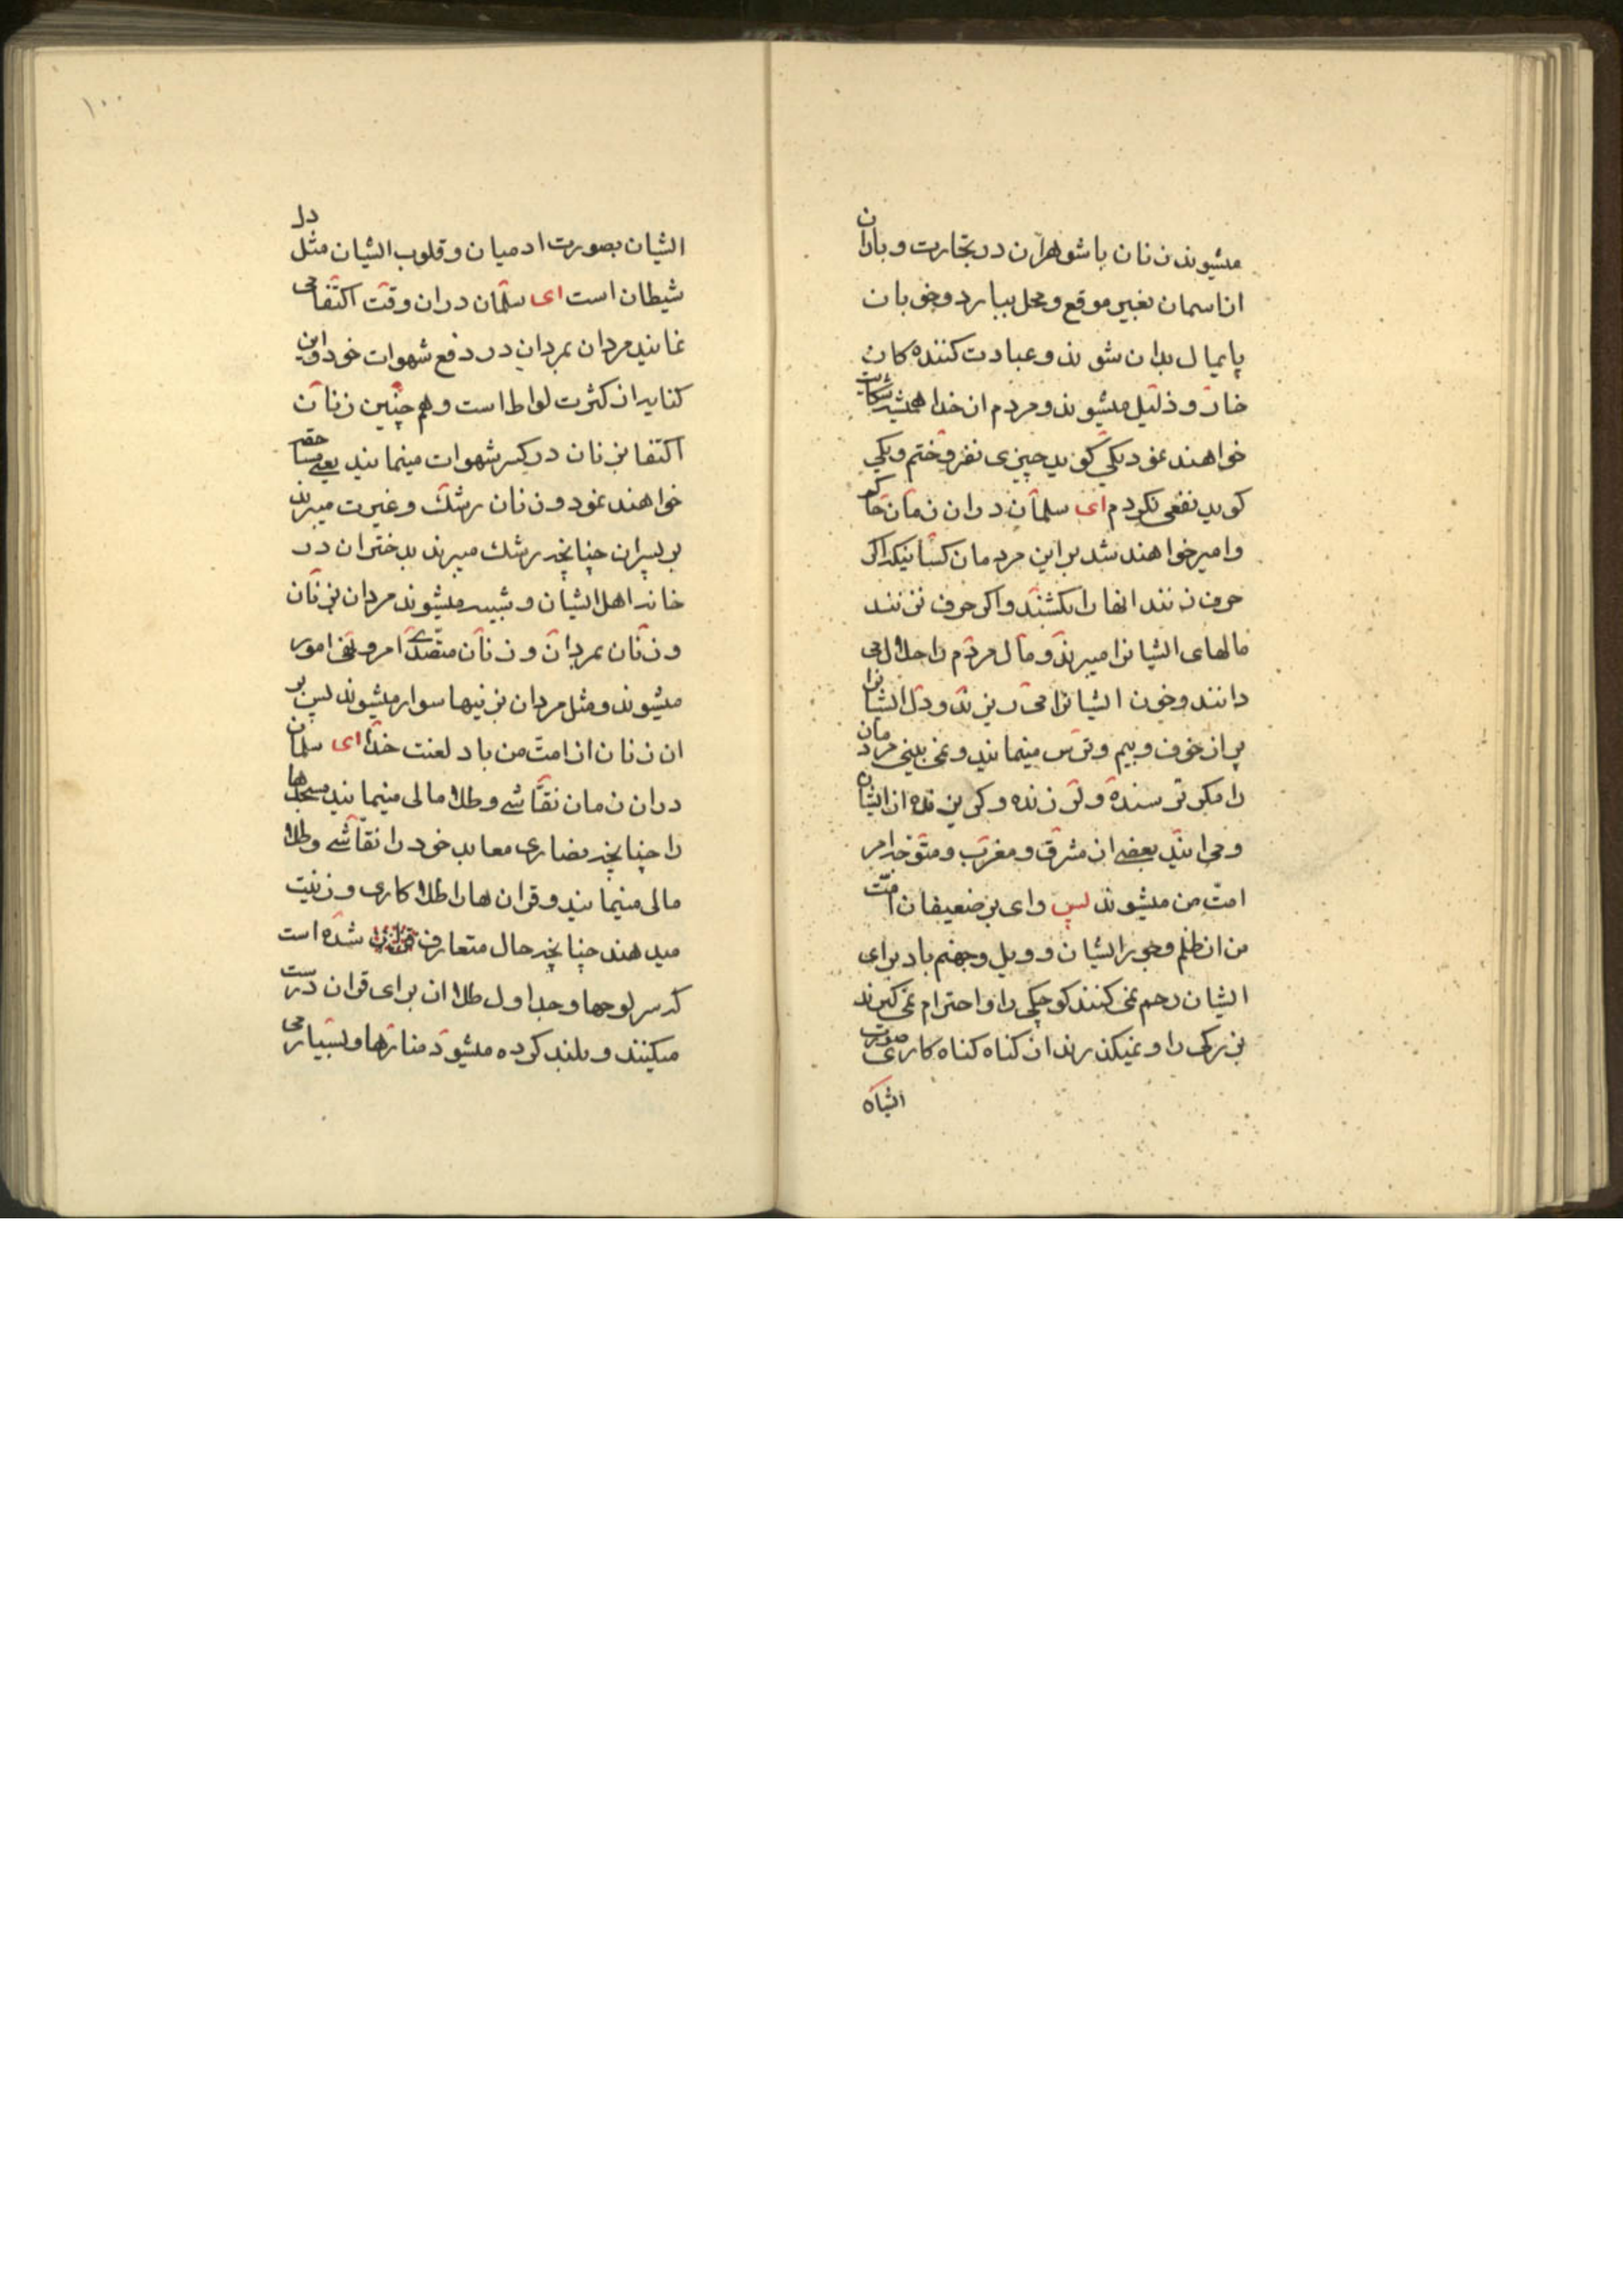 میشوند زنان با شوهران در تجارت و باران
از اسمان بغیر موقع و محل ببارد و خوبان
پایمال بدان شوند و عبادت کننده کان
خار و ذلیل میشوند و مردم از خدا همیشه شکایت
خواهند نمود یکی کوید چیزی نفروختم و یکی
کوید نفعی نکردم ای سلمان در ان زمان حاکم
و امیر خواهند شد بر این مردمان کسانیکه اکر
حرف زنند انها را بکشند و اکر حرف نزنند
مالهای ایشانرا میبرند و مال مردم را حلال می
دانند و خون ایشانرا می ریزند و دل ایشانرا
پر از خوف و بیم و ترس مینمایند و نمی بینی مردمان
را مکر ترسنده و لرزنده و کریزنده از ایشان
و می ایند بعضی از مشرق و مغرب و متوجه امر
امت من میشوند پس وای بر ضعیفان امت
من از ظلم و جور ایشان و ویل و جهنم باد برای
ایشان رحم نمی کنند کوچکی را و احترام نمی کیرند
بزرکی را و نمیکذرند از کناه کناه کاری صورت
ایشان بصورت ادمیان و قلوب ایشان مثل دل
شیطان است ای سلمان در ان وقت اکتفا می
نمایند مردان بمردان در دفع شهوات خود و این
کنایه از کثرت لواط است و هم چنین زنان
اکتفا بزنان در کسر شهوات مینمایند یعنی مساحقه
خواهند نمود و زنان رشک و غیرت میبرند
بر پسران چنانچه رشک میبرند بدختران در
خانه اهل ایشان و شبیه میشوند مردان بزنان
و زنان بمردان و زنان متصدی امر و نهی امور
میشوند و مثل مردان بزینها سوار میشوند پس بر
ان زنان از امت من باد لعنت خدا ای سلمان
در ان زمان نقاشی و طلا مالی مینمایند مسجدها
را چنانچه نصاری معابد خود را نقاشی و طلا
مالی مینمایند و قران ها را طلا کاری و زینت
میدهند چنانچه حال متعارف شده است
که سر لوحها و جداول طلا از برای قران درست
میکنند و بلند کرده میشود منارها و بسیار می